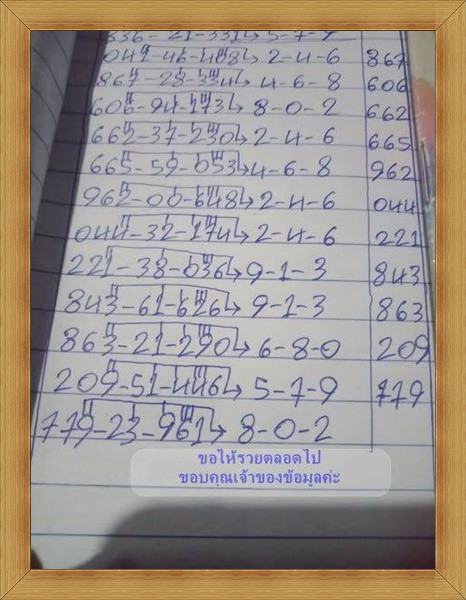 836-21-331 5-7-9
041-46-408 2-4-6 867
867-28-334 4-6-8 606
606-94-173 8-0-2 662
662-37-230 2-4-6 665
665-59-053 4-6-8 962
962-00-648 2-4-6 044
044-32-174 2-4-6 221
221-38-036 9-1-3 843
843-61-626 9-1-3 863
863-21-290 6-8-0 209
209-51-446 5-7-9 779
779-23-961 8-0-2
ขอให้รวยตลอดไป
ขอบคุณเจ้าของข้อมูลค่ะ